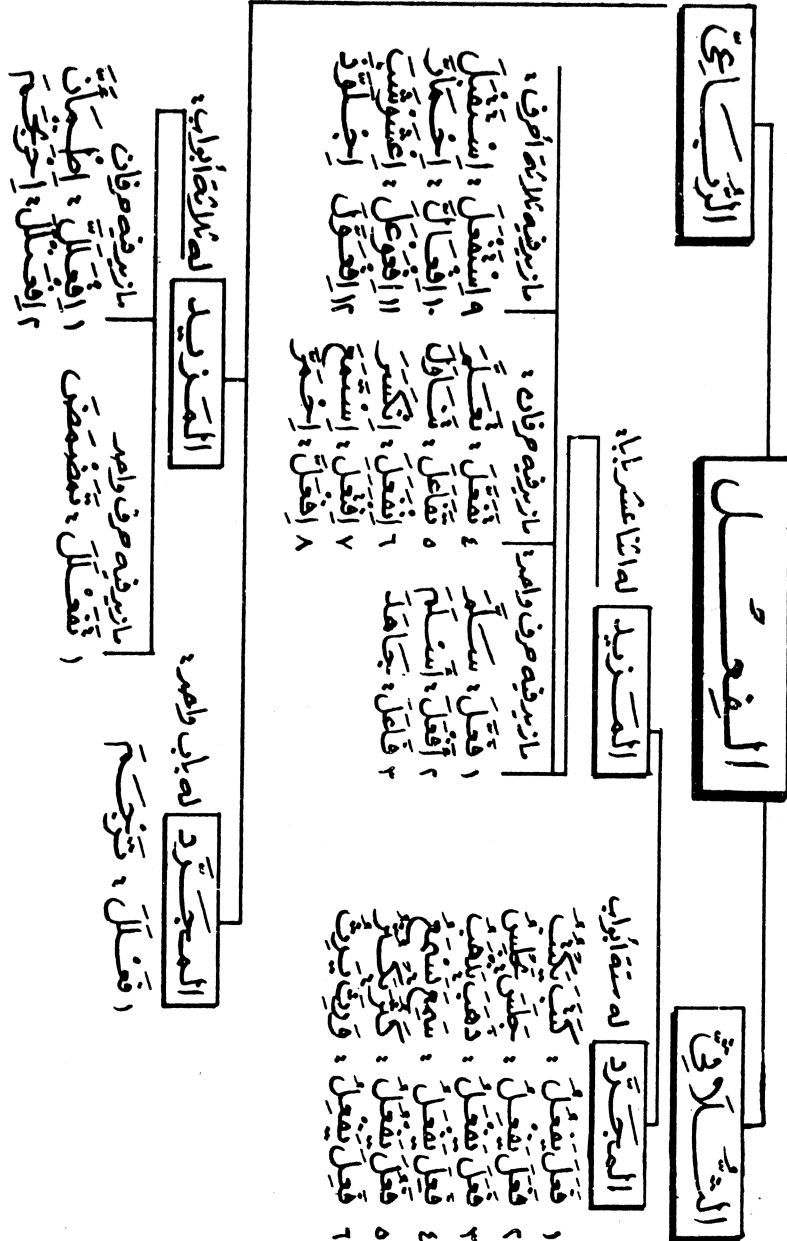 الفِعْل
الثُّلَاثِيّ
الرُّبَاعِيّ
المُجَرَّد
له ستة أبواب
١ فَعَلَ يَفْعُلُ : كَتَبَ يَكْتُبُ
٢ فَعَلَ يَفْعِلُ : جَلَسَ يَجْلِسُ
٣ فَعَلَ يَفْعَلُ : ذَهَبَ يَذْهَبُ
٤ فَعِلَ يَفْعَلُ : سَمِعَ يَسْمَعُ
٥ فَعُلَ يَفْعُلُ : كَبُرَ يَكْبُرُ
٦ فَعِلَ يَفْعِلُ : وَرِثَ يَرِثُ
المَزِيد
له اثنا عشر بابا :
مازيد فيه حرف واحد :
١ فَعَّلَ : سَلَّمَ
٢ أَفْعَلَ : أَسْلَمَ
٣ فَاعَلَ : جَاهَدَ
مازيد فيه حرفان :
٤ تَفَعَّلَ : تَعَلَّمَ
٥ تَفَاعَلَ : تَنَاوَلَ
٦ اِنْفَعَلَ : اِنْكَسَرَ
٧ اِفْتَعَلَ : اِسْتَمَعَ
٨ اِفْعَلَّ : اِحْمَرَّ
مازيد فيه ثلاثة أحرف :
٩ اِسْتَفْعَلَ : اِسْتَقْبَلَ
١٠ اِفْعَالَّ : اِحْمَارَّ
١١ اِفْعَوْعَلَ : اِعْشَوْشَبَ
١٢ اِفْعَوَّلَ : اِجْلَوَّذَ
المُجَرَّد
له باب واحد :
١ فَعْلَلَ : تَرْجَمَ
المَزِيد
له ثلاثة أبواب :
مازيد فيه حرف واحد
١ تَفَعْلَلَ : تَمَضْمَضَ
مازيد فيه حرفان
١ اِفْعَلَلَّ : اِطْمَأَنَّ
٢ اِفْعَنْلَلَ : اِحْرَنْجَمَ